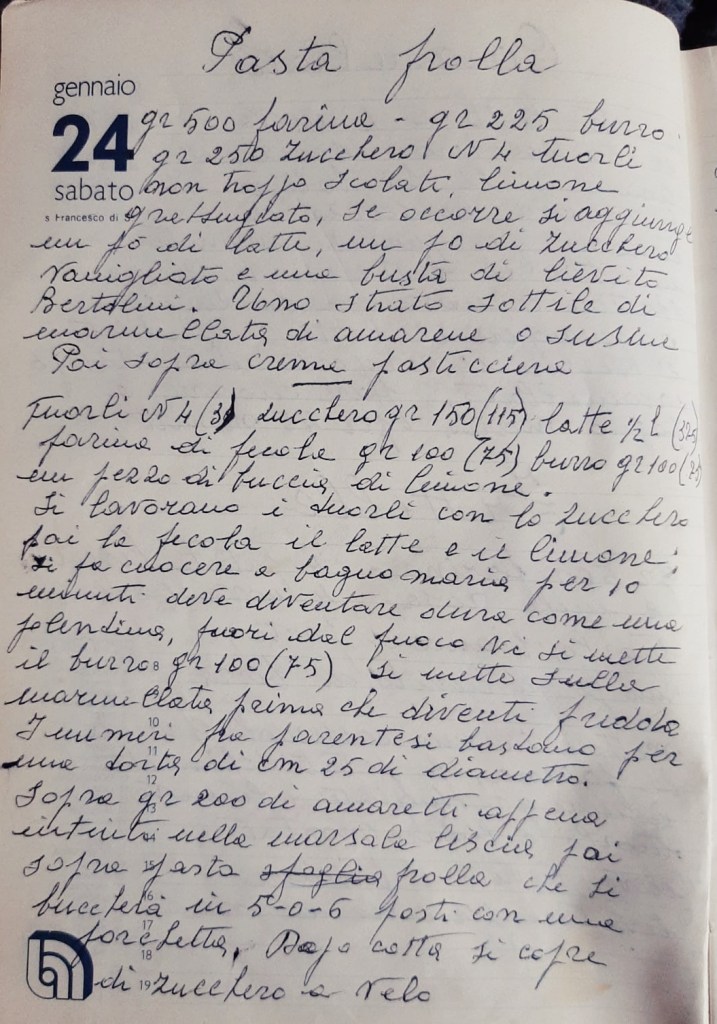 Pasta frolla
gennaio
24
sabato
s Francesco di
gr 500 farina - gr 225 burro
gr 250 zucchero N 4 tuorli
non troppo scolati, limone
grattuggiato, se occorre si aggiunge
un pò di latte, un pò di zucchero
vanigliato e una busta di lievito
Bertolini. Uno strato sottile di
marmellata di amarene o susine
Poi sopra crema pasticciera
Tuorli N 4 (3) zucchero gr 150 (115) latte 1/2 l (375)
farina di fecola gr 100 (75) burro gr 100 (75)
un pezzo di buccia di limone.
Si lavorano i tuorli con lo zucchero
poi la fecola il latte e il limone;
si fa cuocere a bagnomaria per 10
minuti deve diventare dura come una
polentina, fuori dal fuoco vi si mette
il burro gr 100 (75) si mette sulla
8
marmellata prima che diventi fredda
I numeri fra parentesi bastano per
10
una torta di cm 25 di diametro.
11
12
Sopra gr 200 di amaretti appena
13
intinti nella marsala liscia poi
14
sopra pasta sfoglia frolla che si
15
bucherà in 5-o-6 posti con una
16
forchetta. Dopo cotta si copre
17
18
di zucchero a velo
19